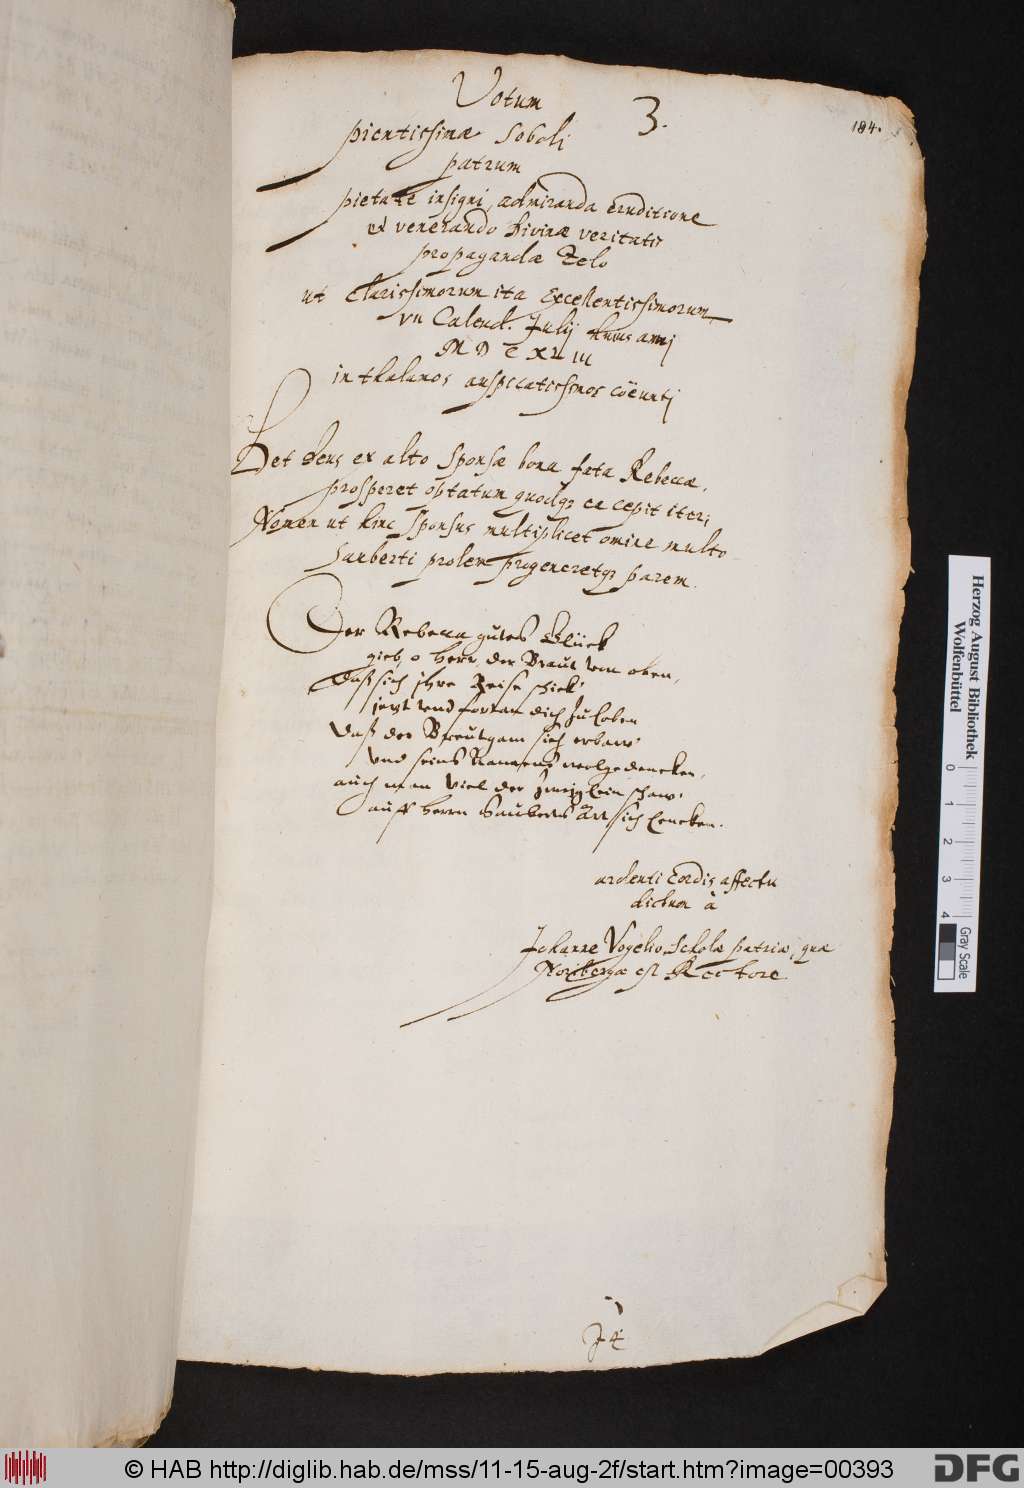 Votum
3.
184.
pientissimæ Soboli
patrum
pietate insigni, admiranda eruditione
et venerando divinæ veritatis
propagandæ Zelo
ut Clarissimorum ita Excellentissimorum
VII Calend. Julij huius anni
M D C XL III
in thalamos auspicatissimos coëunti
Det deus ex alto Sponsæ bona fata Rebeccæ,
prosperet optatum quodq; ea cepit iter;
Nomen ut hinc Sponsus multiplicet omine multo
Sauberti prolem progeneretq; parem.
Der Rebecca gutes Glück
gieb, o Herr, der Braut von oben,
Daß sich ihre Reise schick'
jetzt vnd fortan dich zu loben
Daß der Breutgam sich erbaw'
Vnd seins Nammens wolgedencken,
auch man viel der zweiglein schaw,
auff Herrn Sauberts Art sich lencken.
ardenti Cordis affectu
dictum à
Johanne Vogelio Scholæ patriæ, quæ
Noribergæ est Rectore.
Herzog August Bibliothek
Wolfenbüttel
0 1 2 3 4
Gray Scale
© HAB http://diglib.hab.de/mss/11-15-aug-2f/start.htm?image=00393
DFG